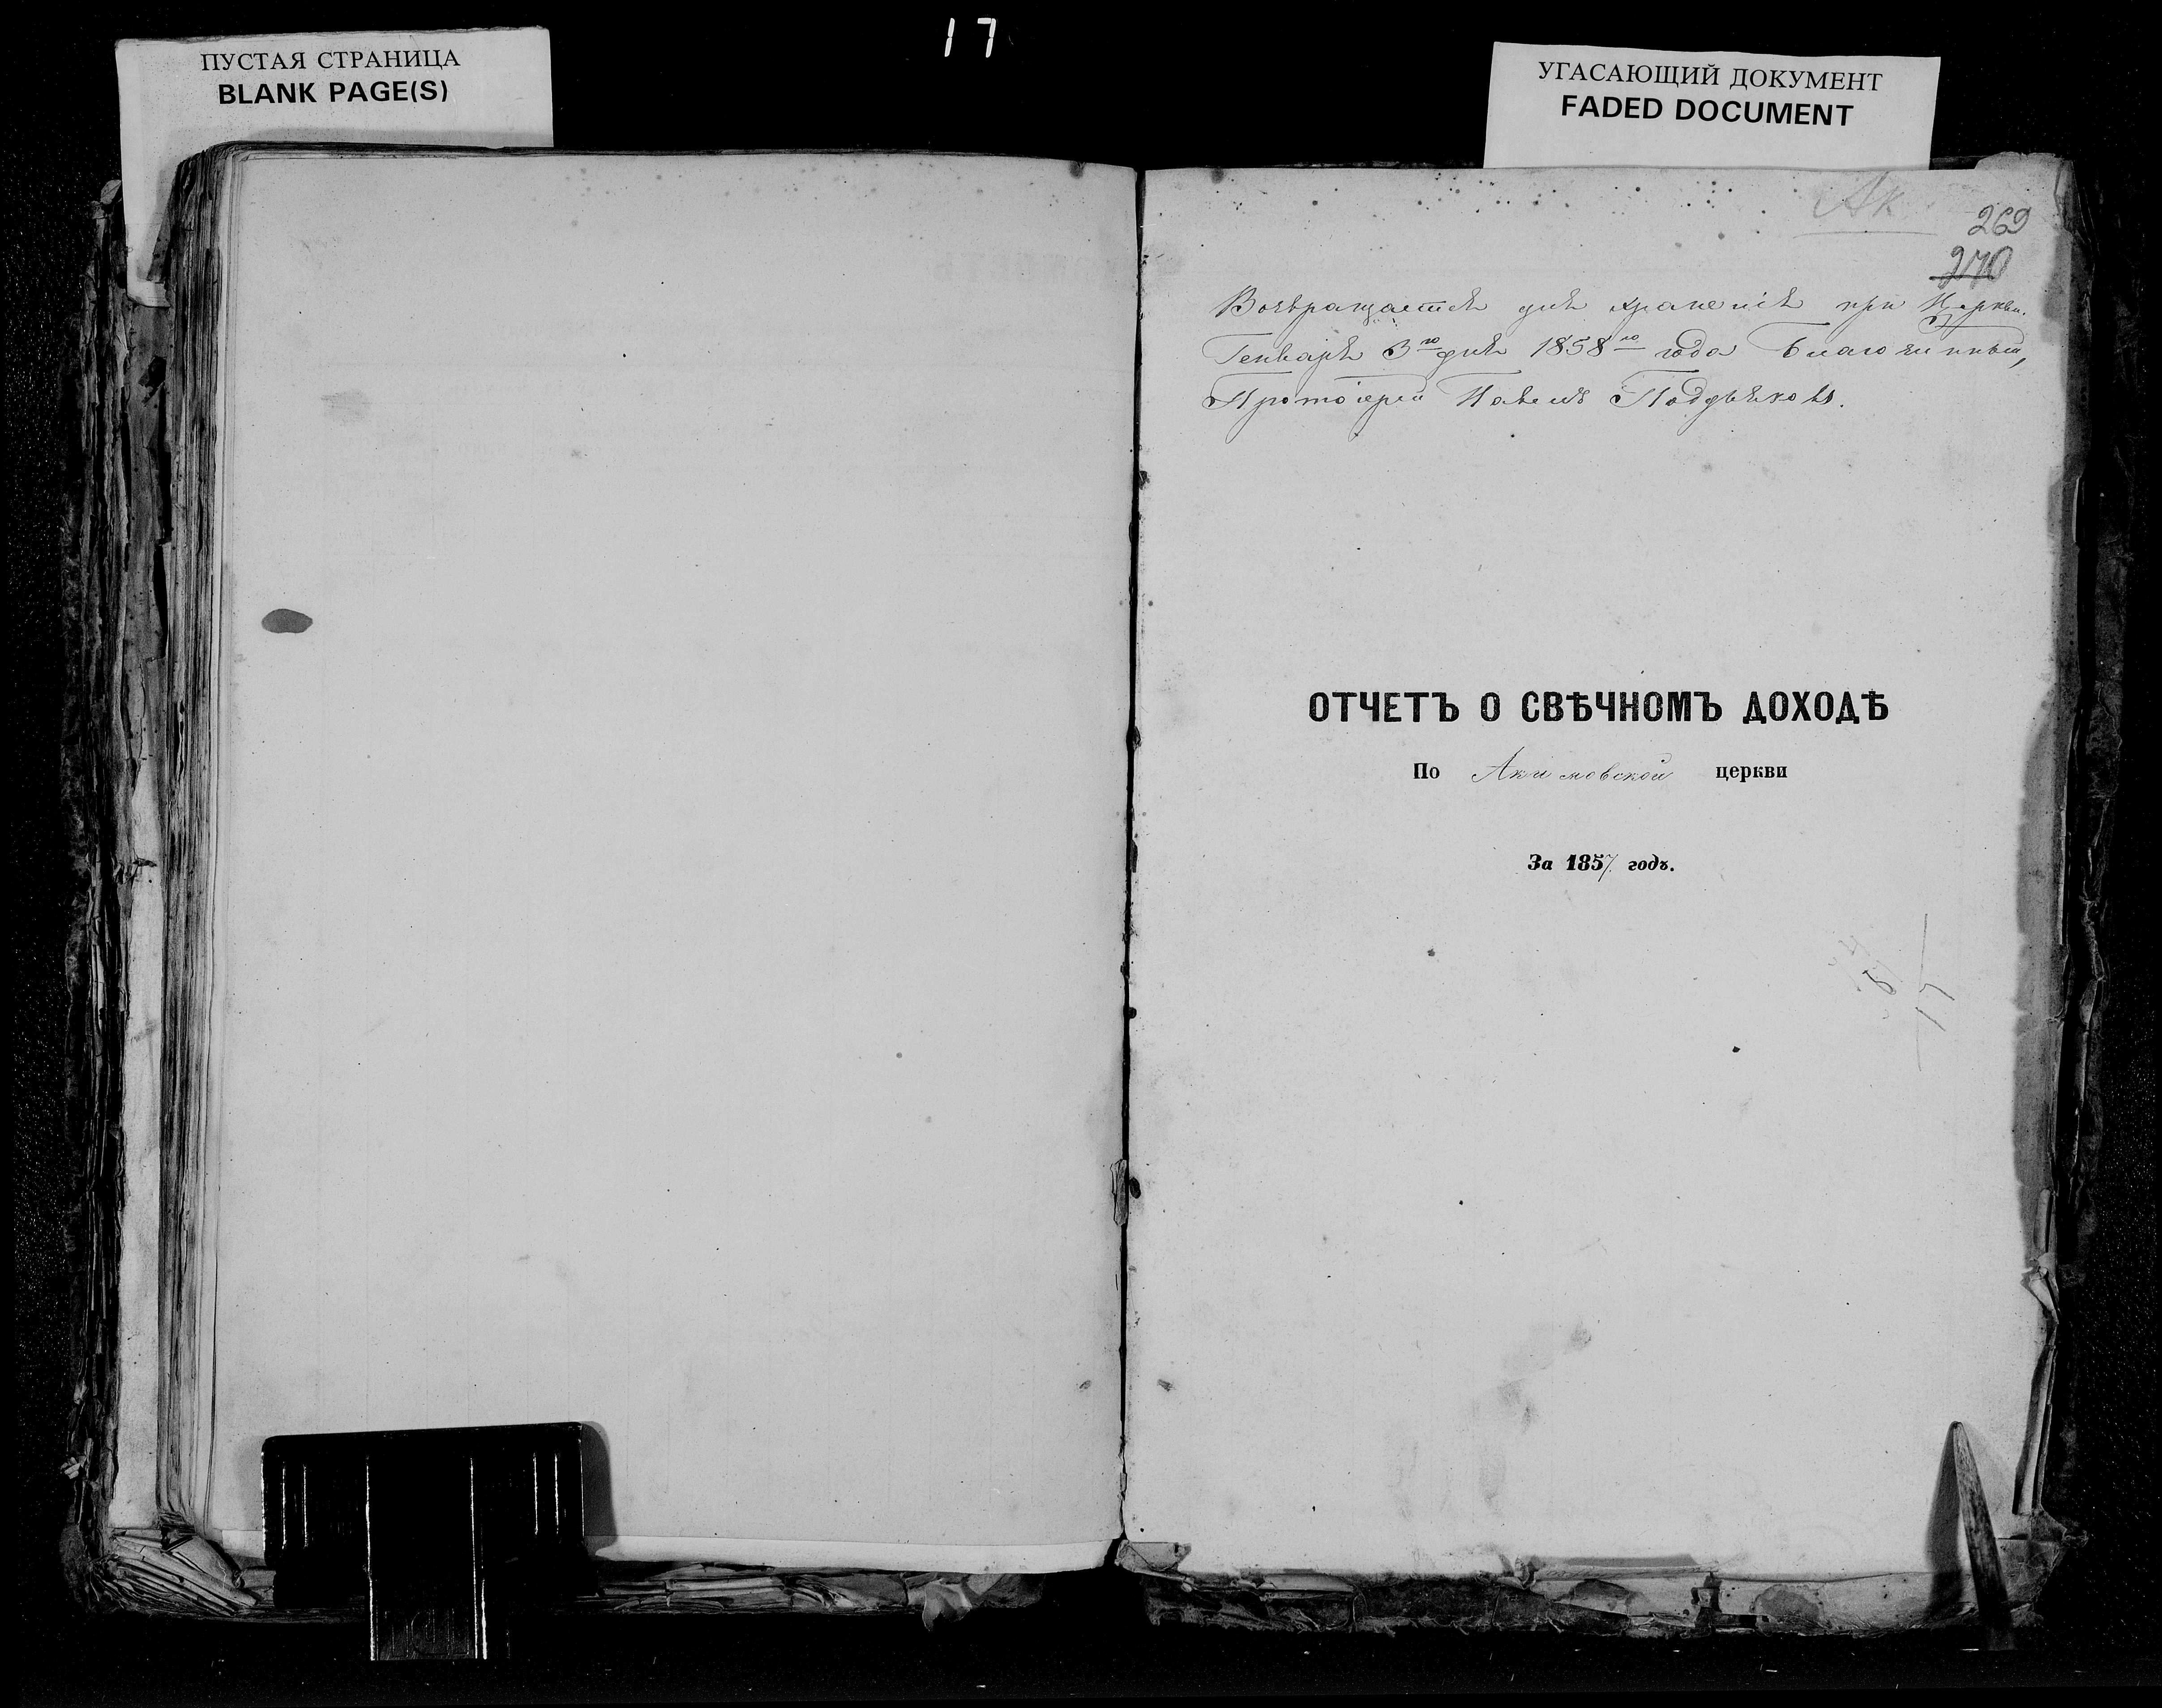 17
ПУСТАЯ СТРАНИЦА
BLANK PAGE(S)
УГАСАЮЩИЙ ДОКУМЕНТ
FADED DOCUMENT
Ак
269
270
Возвращается для храненія при Церкви.
Генваря 3го дня 1858го года Благочинный,
Протоіерей Павелъ Поддьяковъ.
ОТЧЕТЪ О СВѢЧНОМЪ ДОХОДѢ
По Акимовской церкви
За 1857 годъ.
17